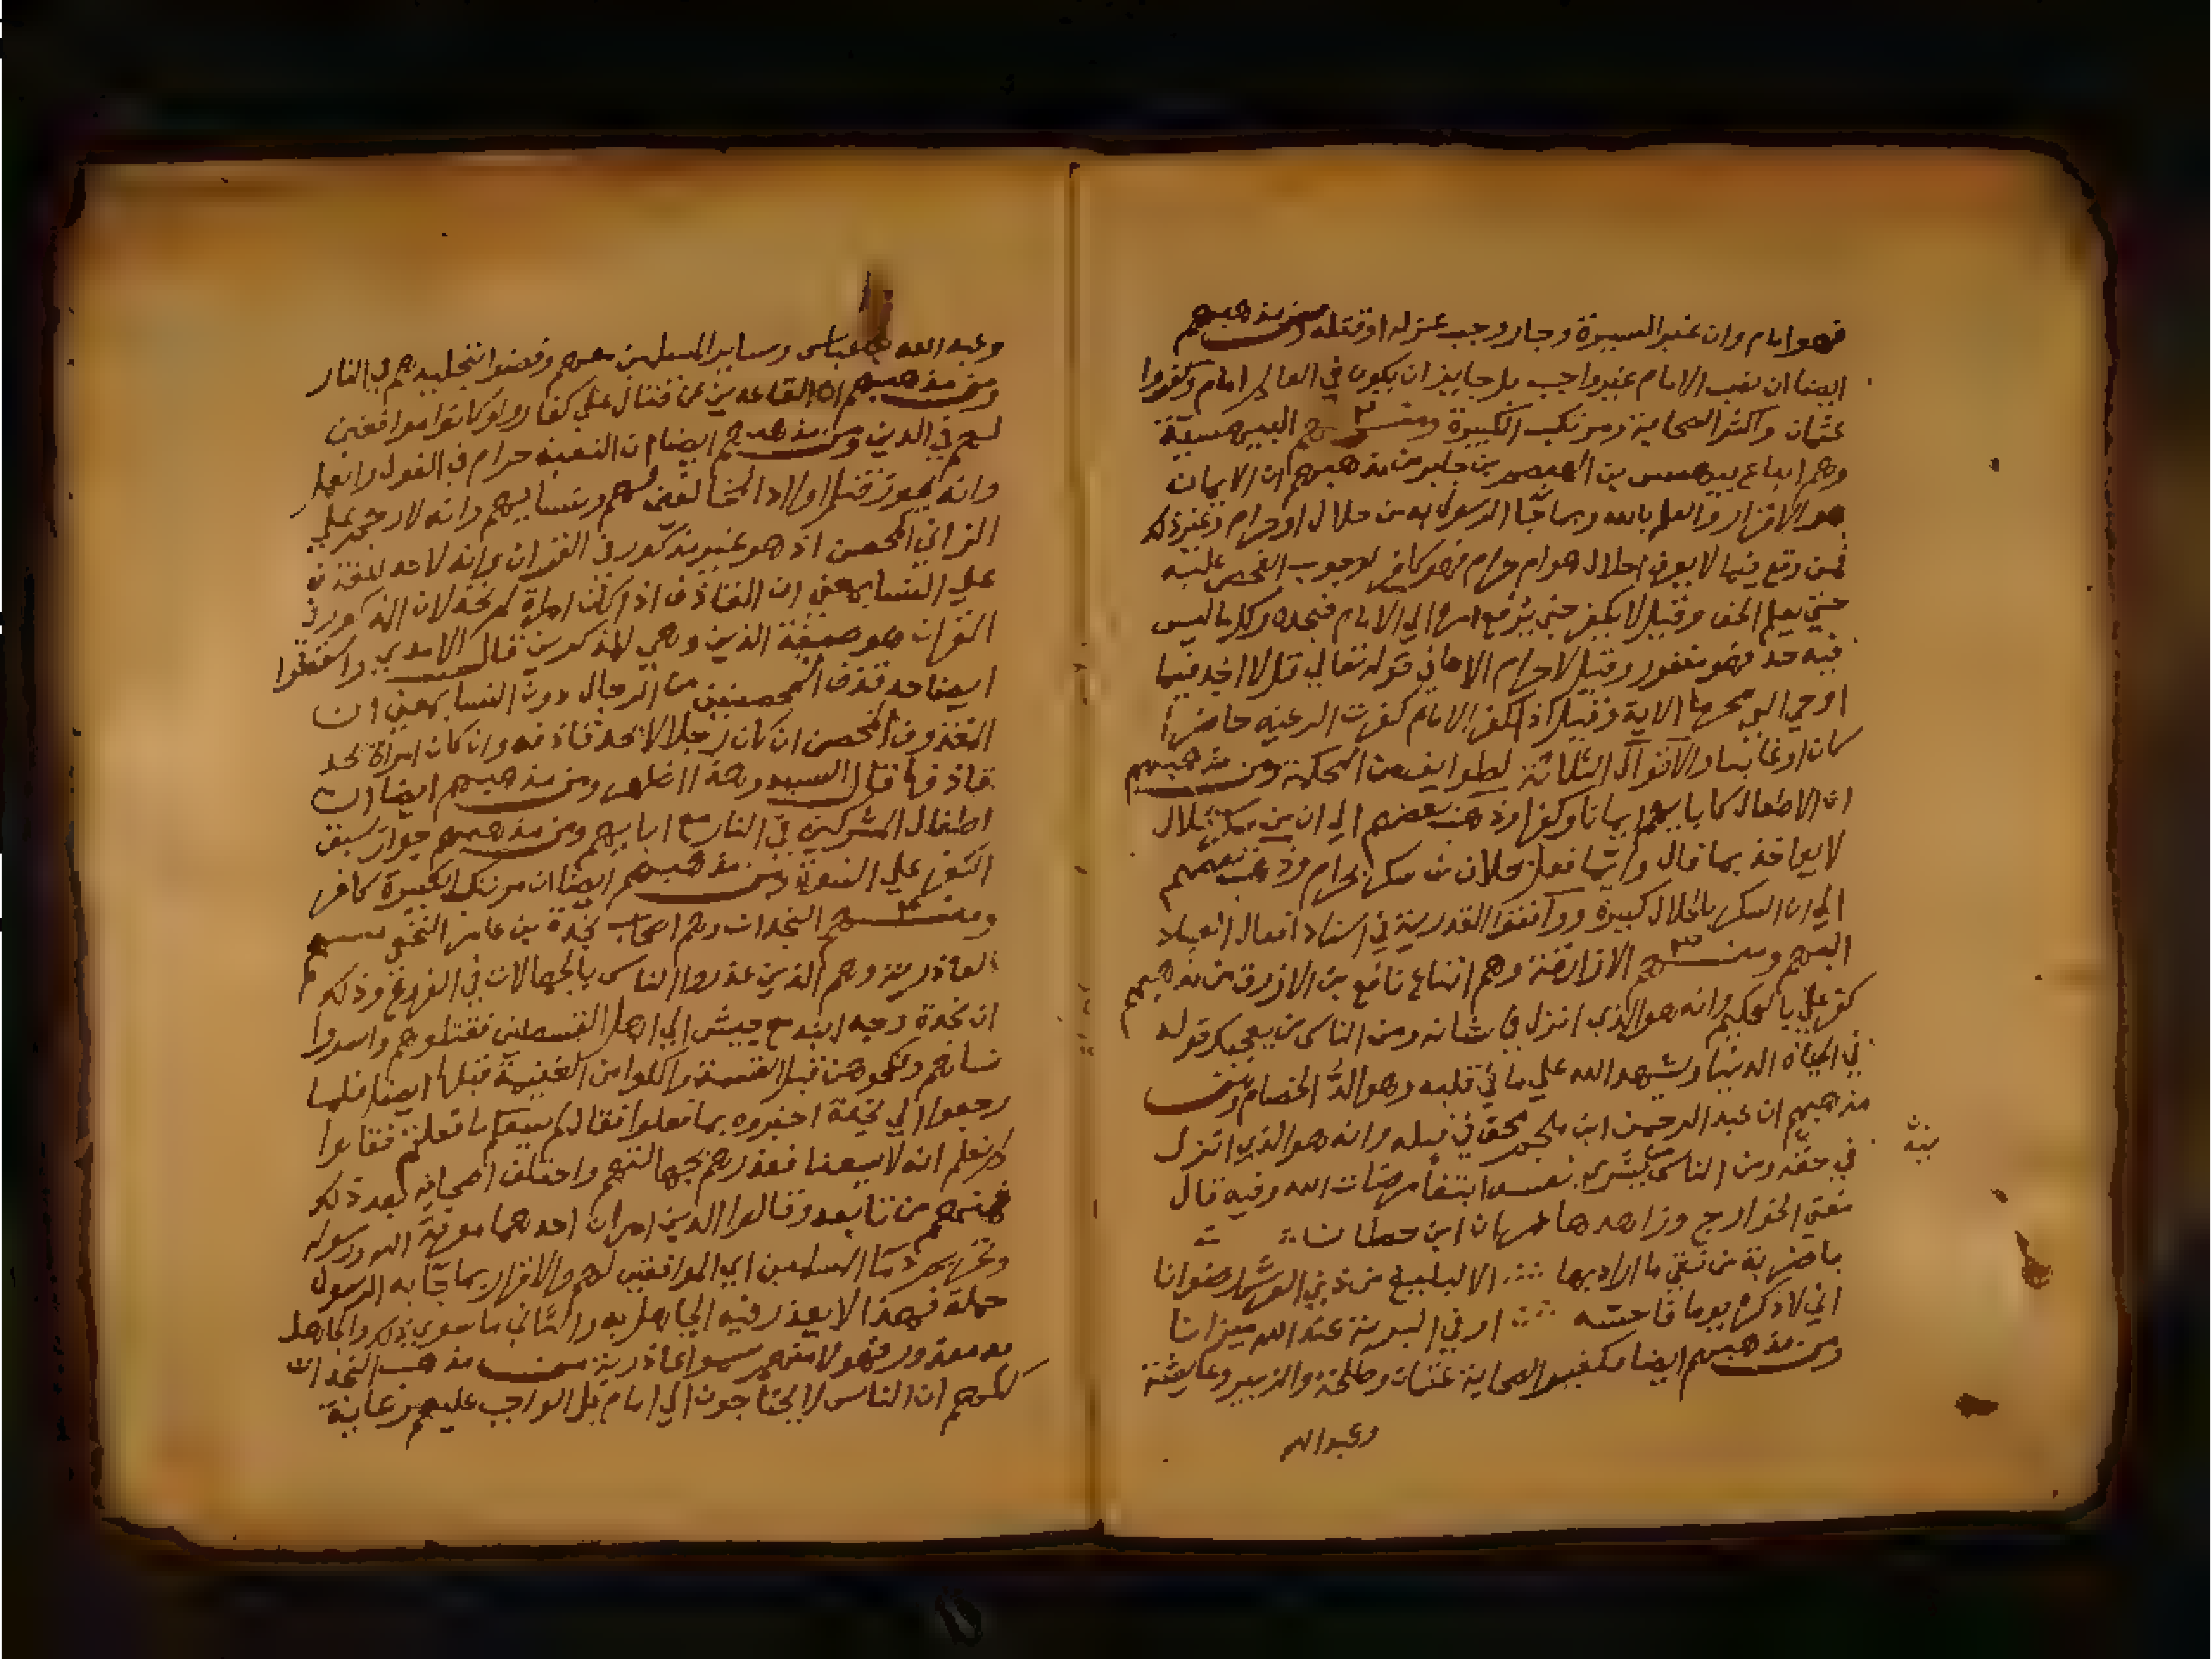 فهو امام وان غير السيرة وجار وجب عزله او قتله ومن مذهبهم
ايضا ان نصب الامام غير واجب بل جايز ان يكون في العالم امام وكفروا
عثمان واكثر الصحابة ومرتكب الكبيرة ومنهم البيهسية
وهم اتباع بيهس بن الهيصم بن جابر من مذهبهم ان الايمان
هو الاقرار والعلم بالله وبما جا الرسول به من حلال او حرام وغير ذلك
فمن وقع فيما لا يعرف احلال هو ام حرام فهو كافر لوجوب الفحص عليه
حتي يعلم الحق وقيل لا يكفر حتي يرفع امره الي الامام فيحده وكل ما ليس
فيه حد فهو مغفور وقيل لا حرام الا ما في قوله تعالي قل لا اجد فيما
اوحي الي محرما الاية وقيل اذا كفر الامام كفرت الرعيه حاضرا
كان او غايبا والاقوال الثلاثة لطوايف من المحكمة ومن مذهبهم
ان الاطفال كابايهم ايمانا وكفرا وذهب بعضهم الي ان من سكر بحلال
لا يواخذ بما قال وايا فعل بخلاف من سكر بحرام وذهب بعضهم
الي ان السكر بالحلال كبيرة ووافقوا القدرية في اسناد افعال العباد
اليهم ومنهم الازارقة وهم اتباع نافع بن الازرق من مذهبهم
كفر علي بالتحكيم وانه هو الذي انزل في شانه ومن الناس من يعجبك قوله
في الحياة الدنيا ويشهد الله علي ما في قلبه وهو الد الخصام ومن
مذهبهم ان عبد الرحمن ابن ملجم محق في قتله وانه هو الذي انزل
في حقه ومن الناس من يشري نفسه ابتغا مرضات الله وفيه قال
مفتي الخوارج وزاهدها عمران ابن حطان
يا ضربة من تقي ما اراد بها الا ليبلغ من ذي العرش رضوانا
اني لاذكره يوما فاحسبه اوفي البرية عند الله ميزانا
ومن مذهبهم ايضا تكفير الصحابة عثمان وطلحة والزبير وعايشة
وعبد الله
وعبد الله بن عباس وساير المسلمين معهم وقضوا بتخليدهم في النار
ومن مذهبهم ان القاعدين عن قتال علي كفار ولو كانوا موافقين
لهم في الدين ومن مذهبهم ايضا ان التقية حرام في القول والعمل
وانه يجوز قتل اولاد المخالفين لهم ونسايهم وانه لا رجم علي
الزاني المحصن اذ هو غير مذكور في القران وانه لا حد للقذف
علي النسا بمعني ان القاذف اذا كانت امراة لم تحد لان المذكور في
القران هو صيغة الذين وهي للمذكرين قال الامدي واسقطوا
ايضا حد قذف المحصنين من الرجال دون النسا بمعني ان
المقذوف المحصن ان كان رجلا لا يحد قاذفه وان كان امراة يحد
قاذفها قال السيد وهذا اظهر ومن مذهبهم ايضا ان
اطفال المشركين في النار مع ابايهم ومن مذهبهم جواز سبق
الكفر علي النبوة ومن مذهبهم ايضا ان مرتكب الكبيرة كافر
ومنهم النجدات وهم اصحاب نجدة بن عامر النخعي
العاذرية وهم الذين عذروا الناس بالجهالات في الفروع وذلك
ان نجدة وجه ابنه مع جيش الي اهل القسطس فقتلوهم واسروا
نساهم ونكحوهن قبل القسمة واكلوا من الغنيمة قبلها ايضا فلما
رجعوا الي نجدة اخبروه بما فعلوا فقال لم يسعكم ما فعلتم فقالوا
لم نعلم انه لا يسعنا فعذرهم بجهالتهم واختلف اصحابه بعد ذلك
فمنهم من تابعه وقالوا الدين امران احدهما معرفة الله ورسوله
وتحريم دما المسلمين اي الموافقين لهم والاقرار بما جا به الرسول
جملة فهذا لا يعذر فيه الجاهل به والثاني ما سوي ذلك والجاهل
به معذور فهولا منهم سموا عاذرية مذهب النجدات
كلهم ان الناس لا يحتاجون الي امام بل الواجب عليهم رعاية